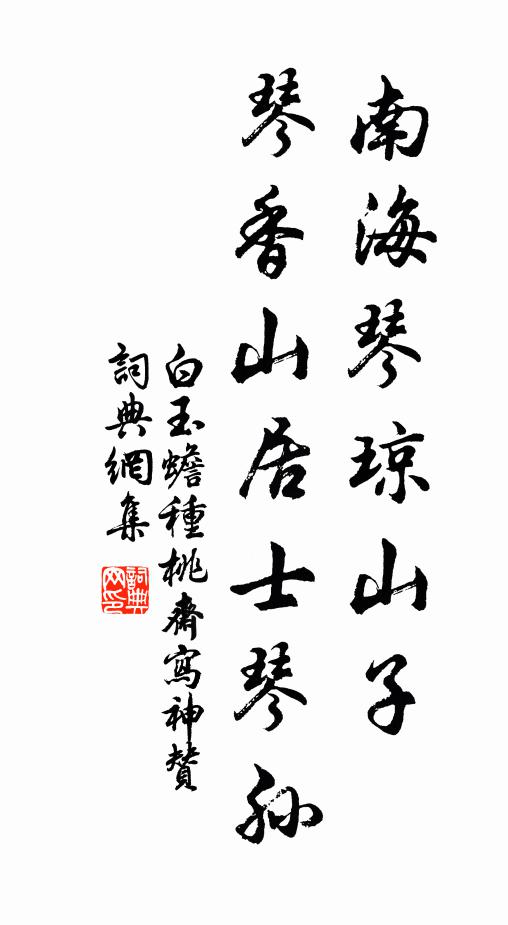 南海琴琼山子
琴香山居士琴孙
白玉蟾種桃齋寫神贊
詞典網集
詞典网印